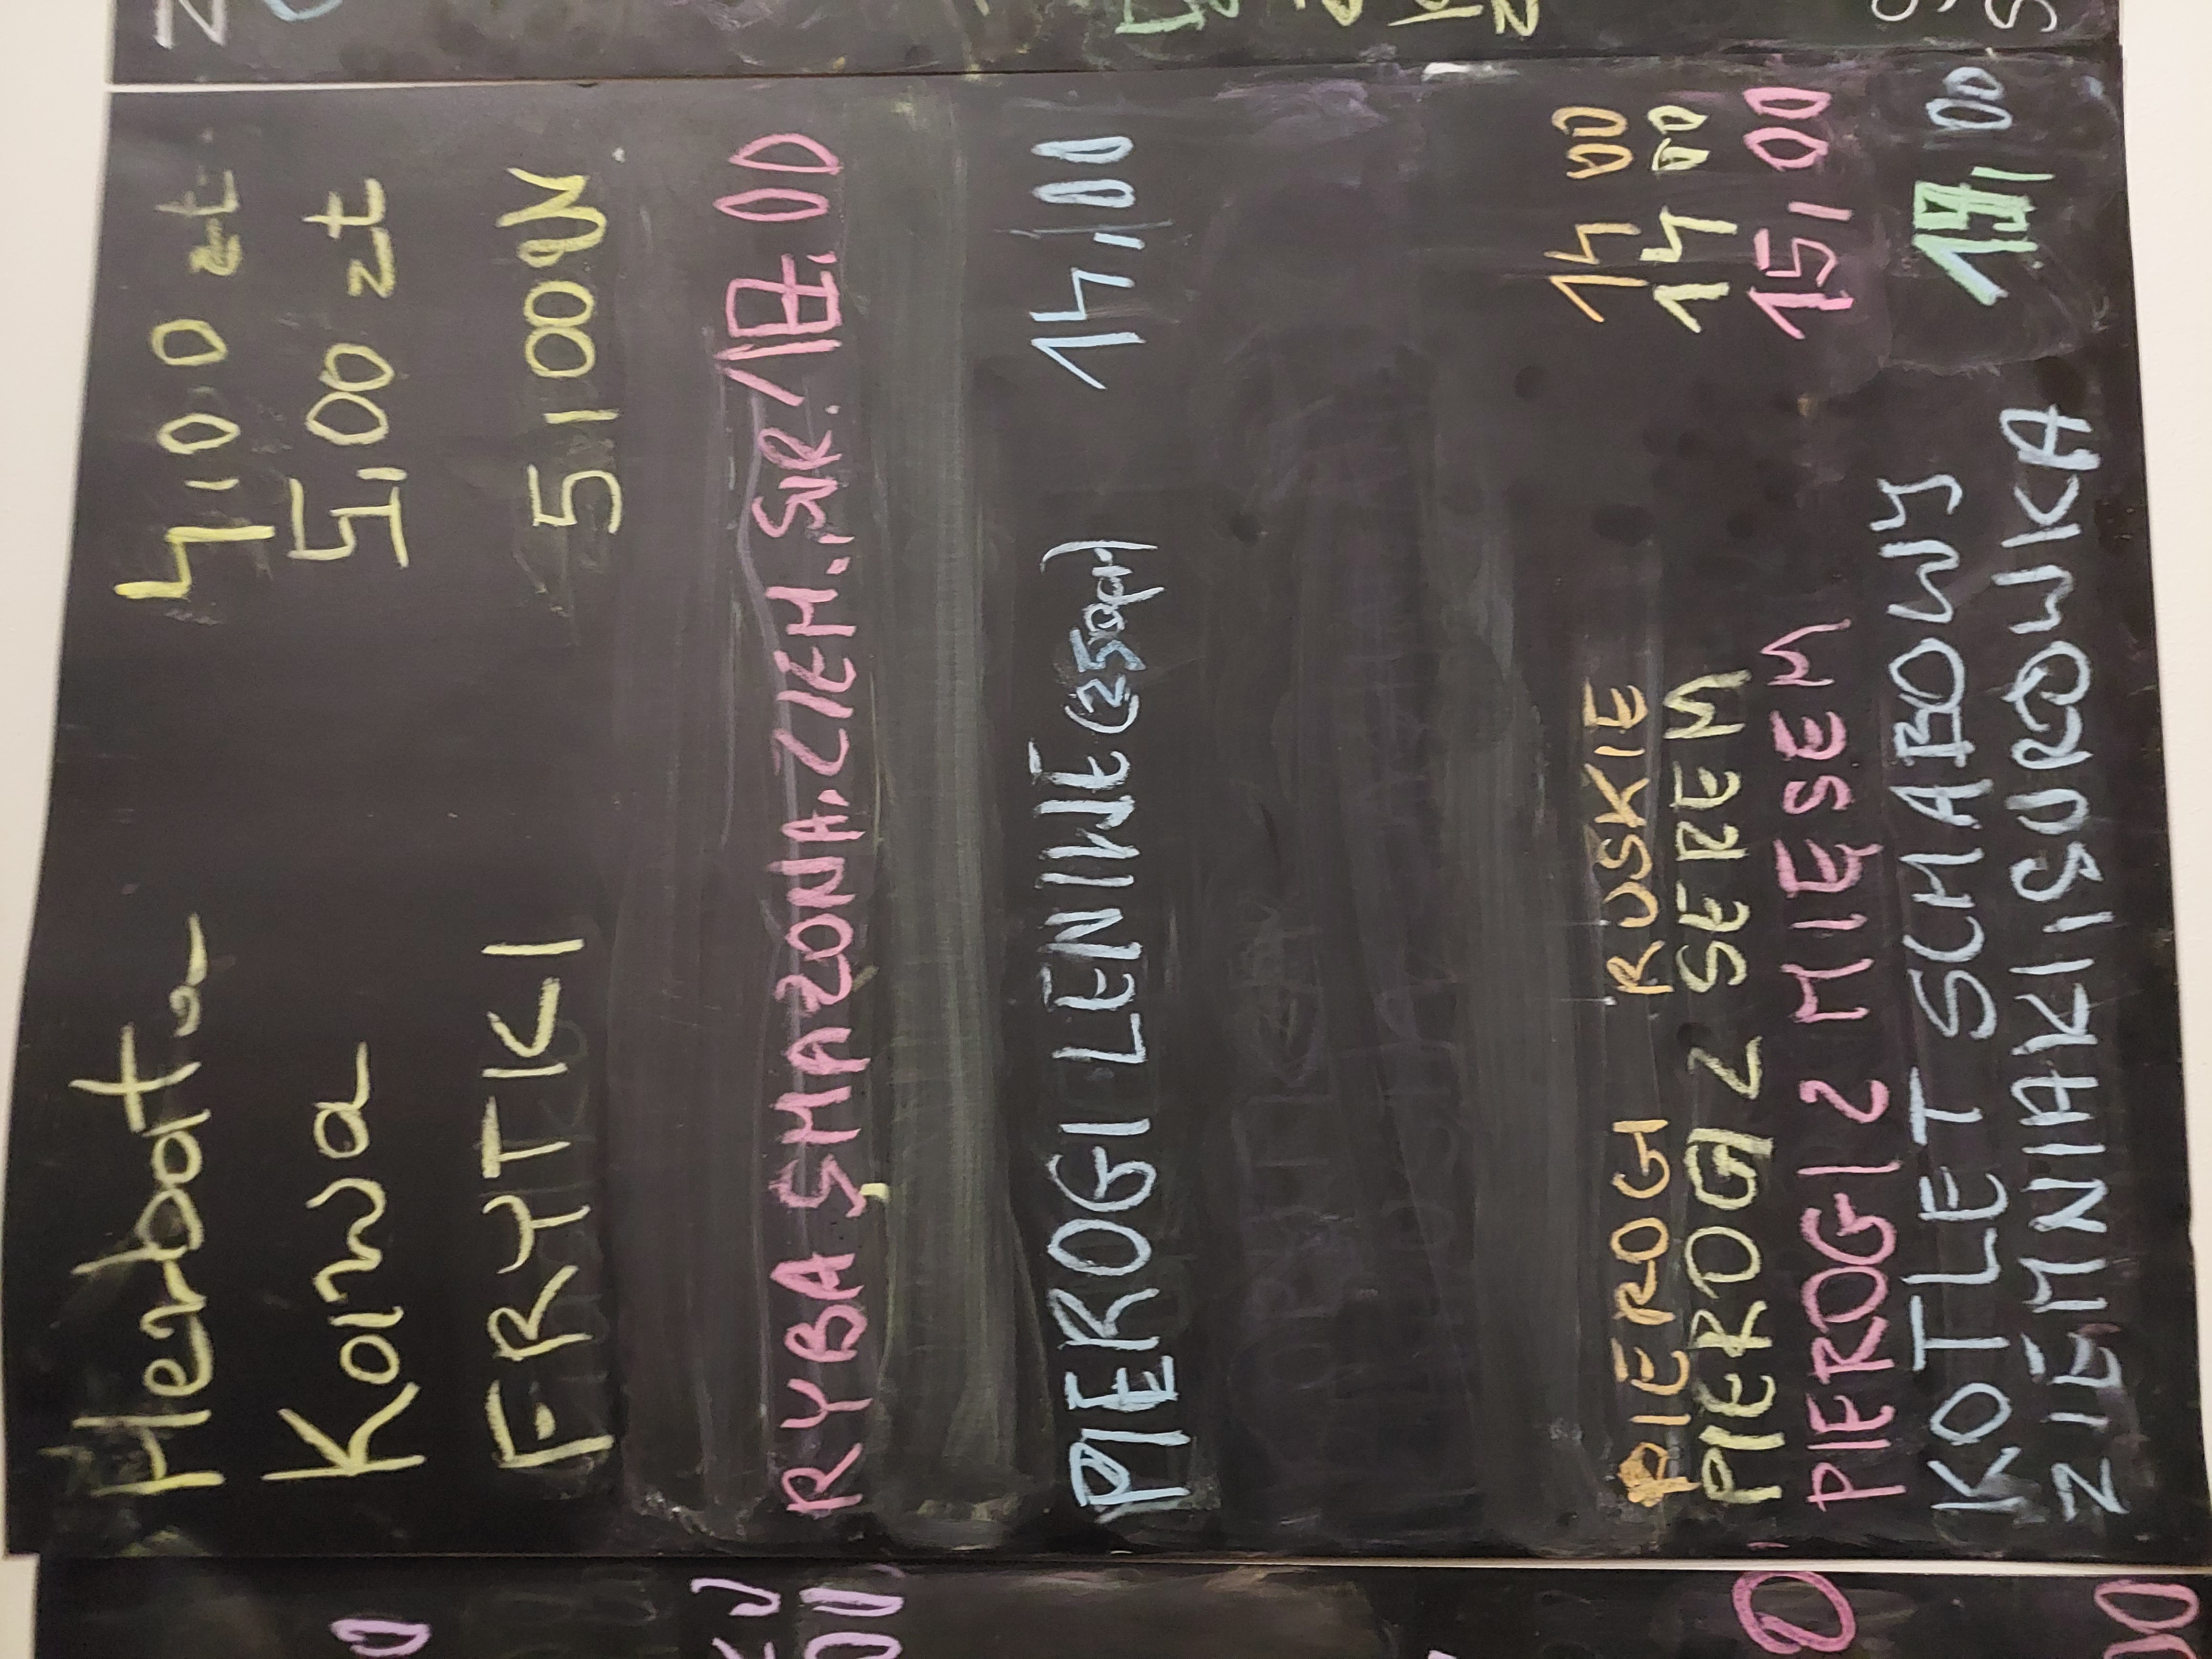 Herbata 4,00 zł
Kawa 5,00 zł
FRYTKI 5,00
RYBA SMAZONA.ZIEM.SUR. 17.00
PIEROGI LENIWE (250gr) 14,00
PIEROGI RUSKIE 14 00
PIEROGI Z SEREM 14 00
PIEROGI Z MIĘSEM 15,00
KOTLET SCHABOWY
ZIEMNIAKI SURÓWKA 19,00